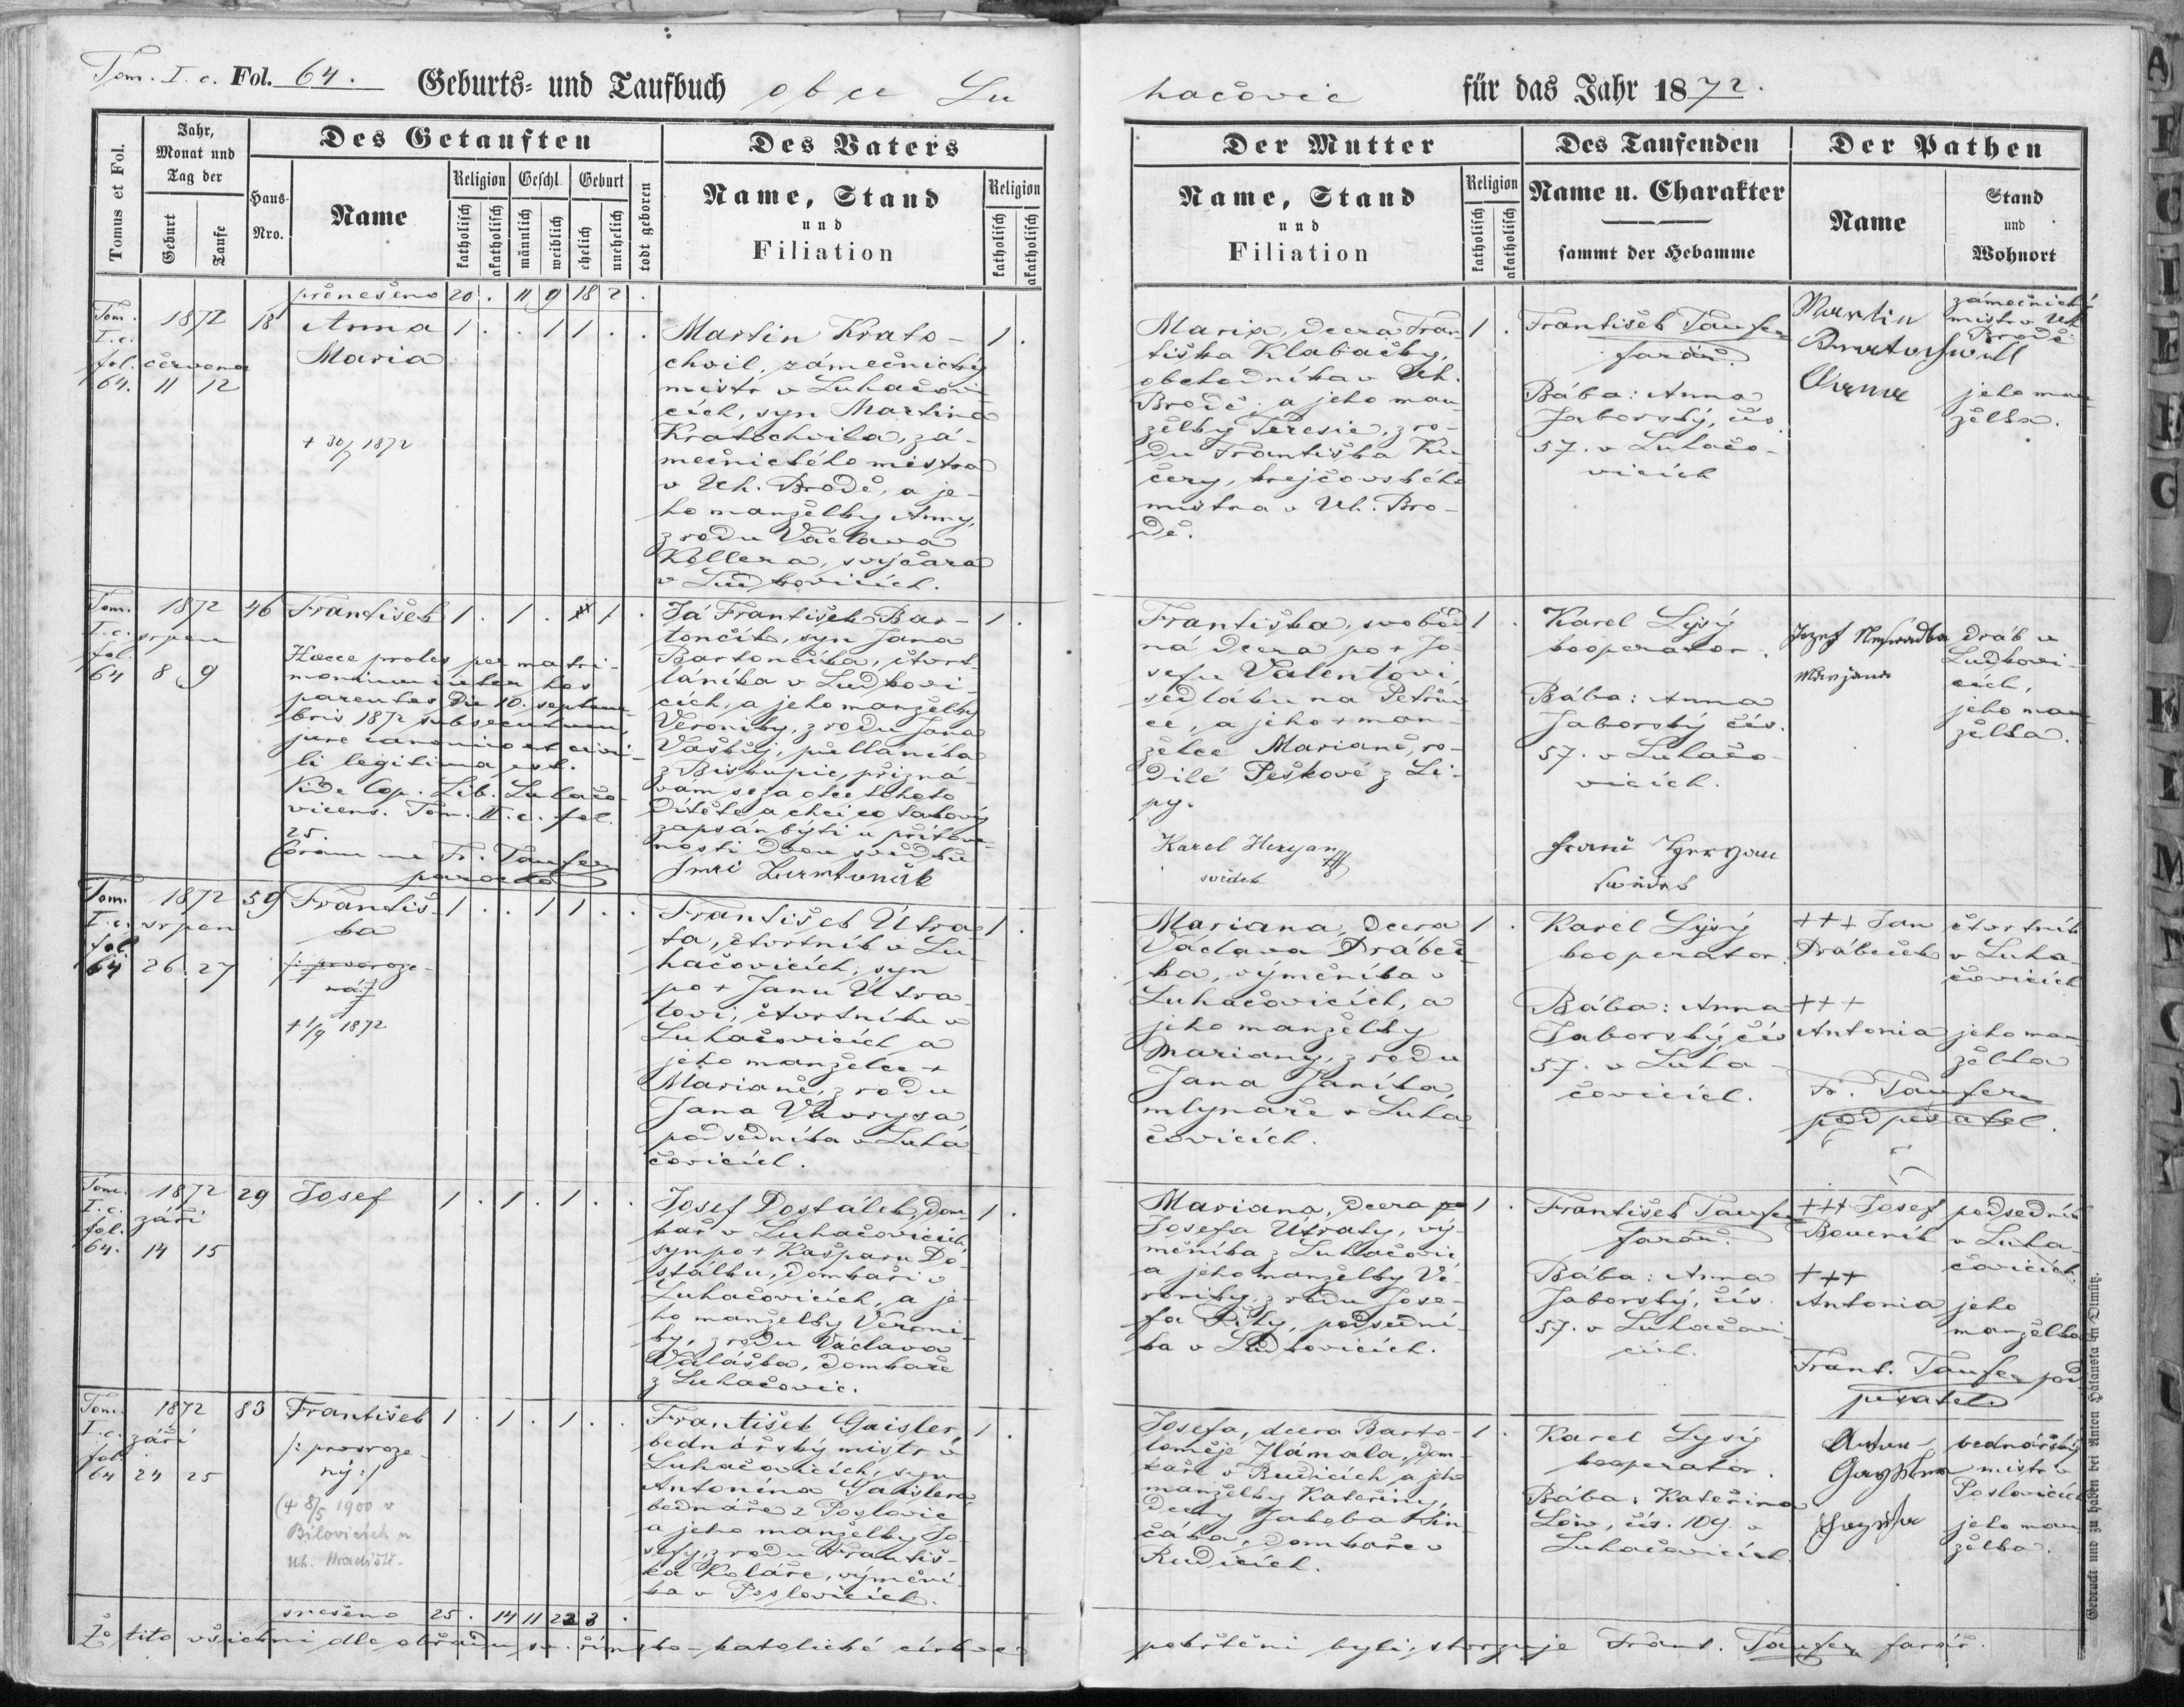 Tom. I. c. Fol. 64. Geburts- und Taufbuch obce Lu
hačovic für das Jahr 1872.
Tomus et Fol.
Jahr, Monat und Tag der
Geburt
Taufe
Haus-Nro.
Des Getauften
Name
Religion
katholisch
akatholisch
Geschl.
männlich
weiblich
Geburt
ehelich
unehelich
todt geboren
Des Vaters
Name, Stand
und
Filiation
Religion
katholisch
akatholisch
Der Mutter
Name, Stand
und
Filiation
Religion
katholisch
akatholisch
Des Taufenden
Name u. Charakter
sammt der Hebamme
Der Pathen
Name
Stand
und
Wohnort
přenešeno 20 . 11 9 18 2 .
Tom.
I. c.
fol.
64.
1872
června
11 12
18
Anna
Maria
+ 30/7 1872
1 . . 1 1 . .
Martin Krato-
chvil, zámečnický
mistr v Luhačovi-
cích, syn Martina
Kratochvila, zá-
mečnického mistra
v Uh. Brodě, a je-
ho manželky Anny,
z rodu Václava
Kollera, svýčara
v Ludkovicích.
1 .
Maria, dcera Fran-
tiška Klabačky,
obchodníka v Uh.
Brodě, a jeho man-
želky Teresie, z ro-
du Františka Ku-
čery, krejčovského
mistra v Uh. Bro-
dě.
1 .
František Taufer
farář.
Bába: Anna
Jaborský, čís.
57. v Luhačo-
vicích
Martin
Kratochwill
Anna
zámečnický
mistr v Uh.
Brodě
jeho man-
želka.
Tom.
I. c.
fol.
64
1872
srpen
8 9
46
František
Haecce proles per matri-
monium inter hos
parentes die 10. septem-
bris 1872 subsecutum,
jure canonico et civi-
li legitima est.
Vide Cop. Lib. Luhačo-
vicens. Tom. II. c. fol.
25.
Coram me Fr. Taufer
parocho
1 . 1 . 1 .
Já František Bar-
tončík, syn Jana
Bartončíka, čtvrt-
láníka v Ludkovi-
cích, a jeho manželky
Veroniky, z rodu Jana
Vaškůj, půlláníka
z Biskupic, přizná-
vám se za otce tohoto
dítěte a chci co takový
zapsán býti u přítom-
nosti dvou svědků
1 .
Františka, svobod-
ná dcera po + Jo-
sefu Valentovi,
sedláku na Petrův-
ce, a jeho + man-
želce Marianě, ro-
dilé Peškové z Li-
py.
Karel Heryan
svědek
1 .
Karel Lysý
kooperator.
Bába: Anna
Jaborský čís.
57. v Luhačo-
vicích.
Jozef
Marjana
dráb v
Ludkovi-
cích,
jeho man-
želka.
Tom.
I. c.
fol
64
1872
srpen
26 27
59
Františ-
ka
/: prvoroze-
ná :/
+ 1/9 1872
1 . . 1 1 . .
František Útra-
ta, čtvrtník v Lu-
hačovicích, syn
po + Janu Útra-
tovi, čtvrtníku v
Luhačovicích a
jeho manželce +
Marianě, z rodu
Jana Vavrysa,
podsedníka v Luha-
čovicích.
1 .
Mariana, dcera
Václava Drábeč-
ka, výměníka v
Luhačovicích, a
jeho manželky
Mariany, z rodu
Jana Janíka,
mlynáře v Luha-
čovicích.
1 .
Karel Lysý
kooperator.
Bába: Anna
Jaborský, čís
57. v Luha-
čovicích.
+++ Jan
Drábeček
+++
Antonia
Fr. Taufer
podpisatel.
čtvrtník
v Luha-
čovicích
jeho man-
želka
Tom.
I. c.
fol.
64.
1872
září
14 15
29
Josef
1 . 1 . 1 . .
Josef Dostálek, dom-
kař v Luhačovicích,
syn po + Kašparu Do-
stálku, domkaři v
Luhačovicích, a je-
ho manželky Veroni-
ky, z rodu Václava
Valáška, domkaře
z Luhačovic.
1 .
Mariana, dcera po
Josefa Útraty, vý-
měníka z Luhačovic
a jeho manželky Ve-
roniky, z rodu Jose-
fa Píhy, podsední-
ka v Ludkovicích.
1 .
František Taufer
farář.
Bába: Anna
Jaborský, čís.
57. v Luhačovi-
cích.
+++ Josef
+++
Antonia
Frant. Taufer pod
pisatel
podsedník
v Luha-
čovicích.
jeho
manželka
Tom.
I. c.
fol.
64
1872
září
24 25
83
František
/: prvoroze-
ný :/
(+ 8/5 1900 v
Bílovicích u
Uh. Hradiště.
1 . 1 . 1 . .
František Gaisler,
bednářský mistr v
Luhačovicích, syn
Antonína Gaislera,
bednáře z Pozlovic
a jeho manželky Jo-
sefy, z rodu Františ-
ka Koláře, výmění-
ka v Pozlovicích.
1 .
Josefa, dcera Barto-
loměje Hlámala, dom-
kaře v Rudicích a jeho
manželky Kateřiny,
dcery Jakoba Hin-
čáka, domkaře v
Rudicích.
1 .
Karel Lysý
kooperator.
Bába: Kateřina
Löw, čís. 109. v
Luhačovicích.
bednářský
mistr v
Pozlovicích
jeho man-
želka.
snešeno 25 . 14 11 22 3 .
Že tito všichni dle obřadu sv. římsko-katolické církve
pokřtěni byli, stvrzuje Frant. Taufer farář.
Gedruckt und zu haben bei Anton Halauska in Olmütz.